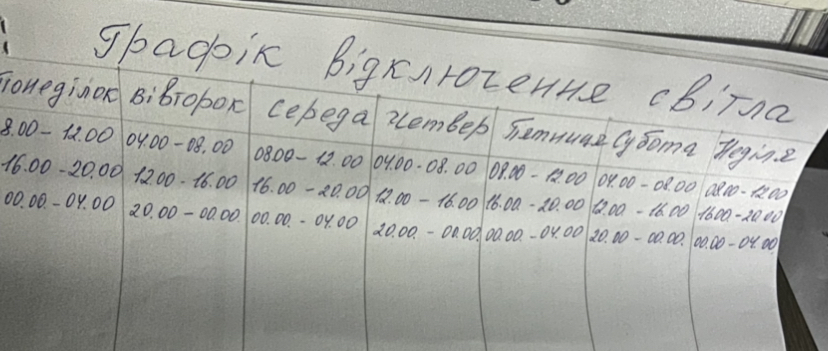 Графік відключення світла
Понеділок Вівторок Середа Четвер Пятниця Субота Неділя
8.00 - 12.00 04.00 - 08.00 08.00 - 12.00 04.00 - 08.00 08.00 - 12.00 04.00 - 08.00 08.00 - 12.00
16.00 - 20.00 12.00 - 16.00 16.00 - 20.00 12.00 - 16.00 16.00 - 20.00 12.00 - 16.00 16.00 - 20.00
00.00 - 04.00 20.00 - 00.00 00.00 - 04.00 20.00 - 00.00 00.00 - 04.00 20.00 - 00.00 00.00 - 04.00